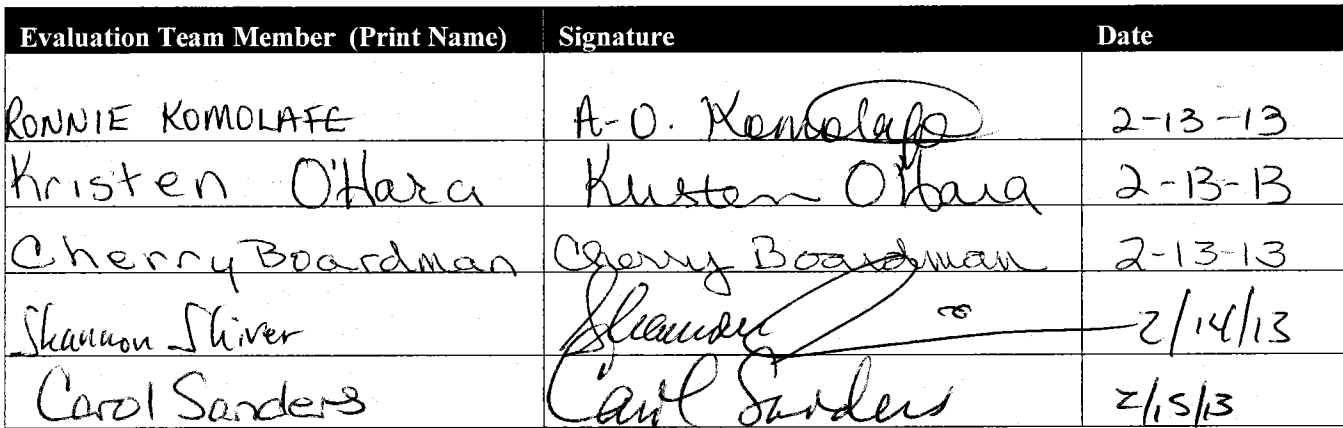 Evaluation Team Member (Print Name) Signature Date
RONNIE KOMOLAFE A-O. Komolafe 2-13-13
Kristen O'Hara Kristen O'Hara 2-13-13
Cherry Boardman Cherry Boardman 2-13-13
Shannon Shiver Shannon 2/14/13
Carol Sanders Carol Sanders 2/15/13